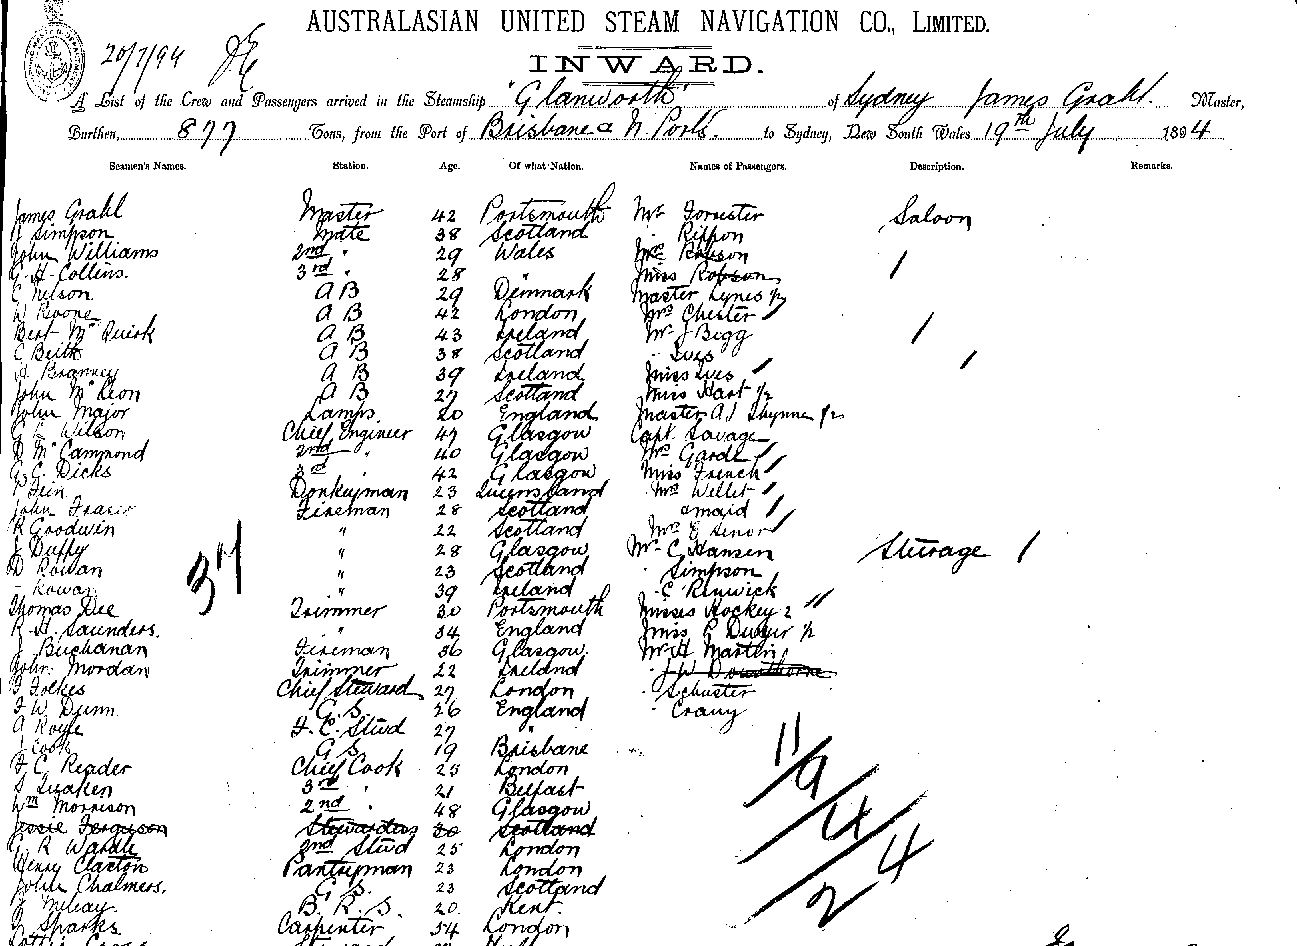 AUSTRALASIAN UNITED STEAM NAVIGATION CO., LIMITED.
20/7/94
INWARD.
A List of the Crew and Passengers arrived in the Steamship "Glanworth" of Sydney James Grahl. Master,
Burthen, 877 Tons, from the Port of Brisbane & N Ports. to Sydney, New South Wales 19th July 1894
Seamen's Names. Station. Age. Of what Nation. Names of Passengers. Description. Remarks.
James Grahl Master 42 Portsmouth Mr Forrester Saloon
Simpson Mate 38 Scotland Rippon
John Williams 2nd " 29 Wales Mrs Robson
G. H. Collins. 3rd " 28 " Miss Robson /
C Nelson. A B 29 Denmark Master Lynes 1/2
W Roone A B 42 London Mrs Chester /
Bert McQuirk A B 43 Ireland Mr J Begg /
C Beith A B 38 Scotland " Ives /
Branney A B 39 Ireland Miss Ives /
John McKeon A B 27 Scotland Miss Hart 1/2
John Major Lamps 20 England Master A 1/2
Wilson Chief Engineer 47 Glasgow Capt. Savage
D McCammond 2nd " 40 Glasgow Mrs Gardt /
G. C. Dicks 3rd " 42 Glasgow Miss French /
Donkeyman 23 Queensland Mrs Willet /
John Fraser Fireman 28 Scotland & maid /
R Goodwin " 22 Scotland Mrs E Senor /
J Duffy " 28 Glasgow Mr C Hansen Steerage /
D Rowan " 23 Scotland " Simpson
37
Rowan " 39 Ireland " C Renwick
Thomas Dee Trimmer 30 Portsmouth Misses Hockey 2 //
R. H. Saunders. " 34 England Miss Dwyer 1/2
J Buchanan Fireman 36 Glasgow. Mr H Martin
John Mordan Trimmer 22 Ireland " J W
Folkes Chief Steward 27 London " Schuster
W. Dunn G. S. 26 England " Crany
A Royle F. C. Stud 27 "
J Cook G S. 19 Brisbane
F C. Reader Chief Cook 25 London
S Luaken 3rd " 21 Belfast
Wm Morrison 2nd " 48 Glasgow
Jessie Ferguson Stewardess 30 Scotland
R Wardle 2nd Stud 25 London
Henry Claxton Pantryman 23 London
John Chalmers. G S. 23 Scotland
B. R. S. 20 Kent.
Sparks Carpenter 54 London
11/9/4/4/2